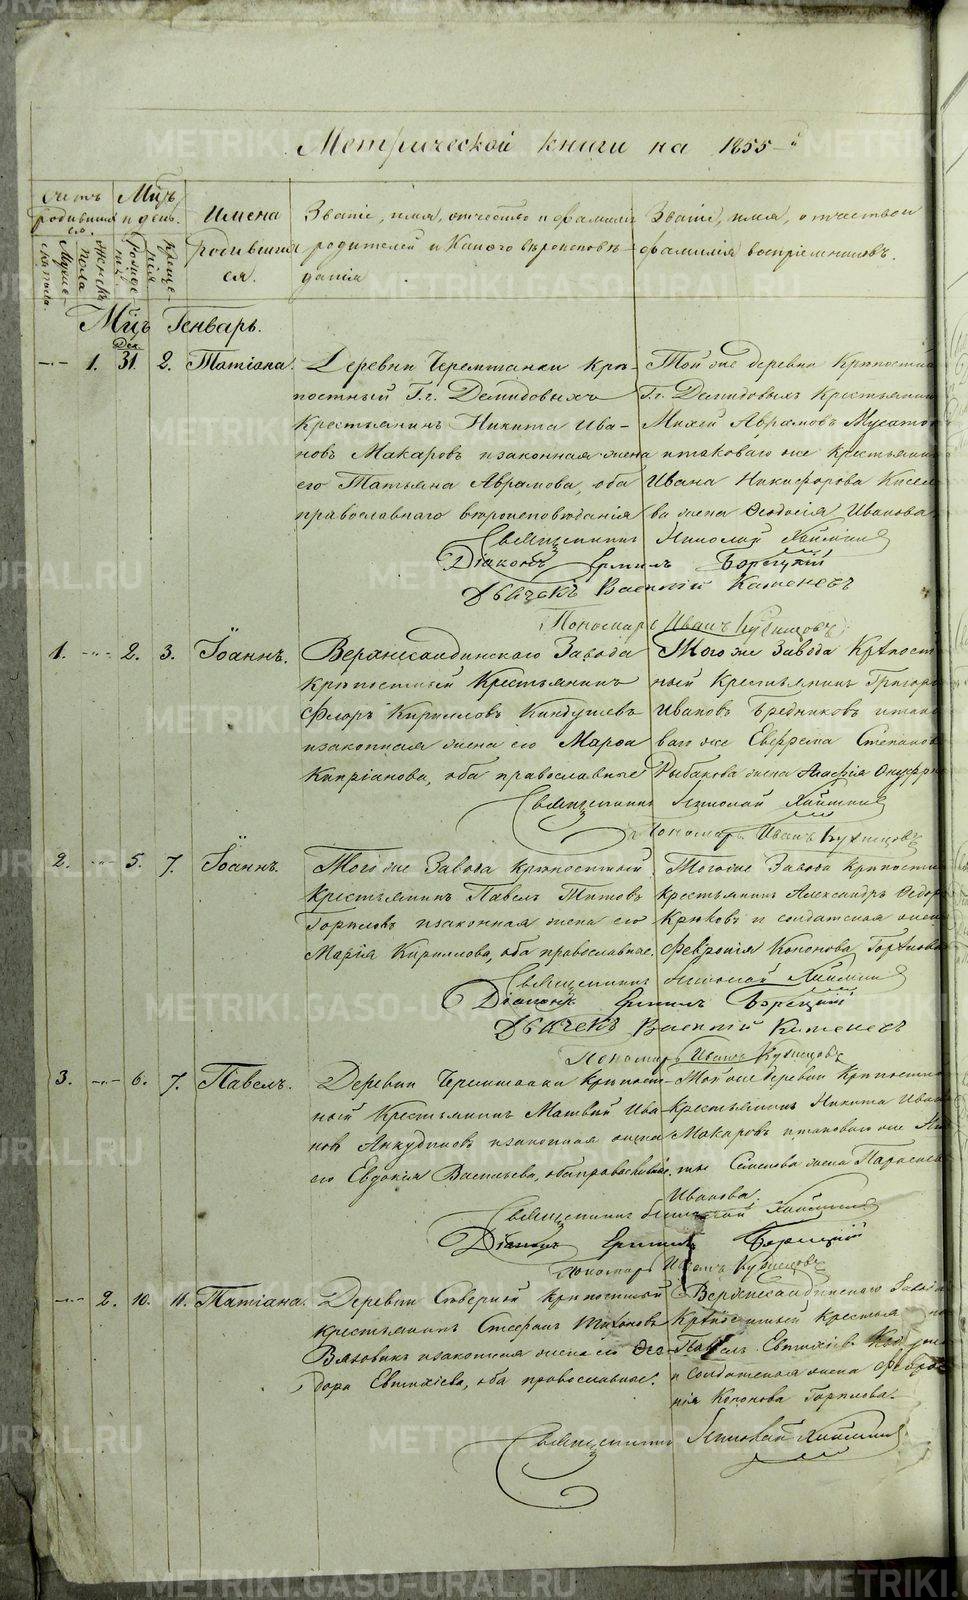 Метрической книги на 1855-й
Счетъ родившихся.
Мужеска пола.
Женска пола
Мѣць и день.
рожденія
крещенія
Имена родившихся.
Званіе, имя, отчество и фамилія
родителей и Какого вѣроисповѣ-
данія
Званіе, имя, отчество и
фамилія воспріемниковъ.
Мѣць Генварь.
--- 1. Дек. 31. 2. Татіана.
Деревни Черемшанки Крѣ-
постный Г.г. Демидовыхъ
Крестьянинъ Никита Ива-
новъ Макаровъ и законная жена
его Татьяна Аврамова, оба
православнаго вѣроисповѣданія
Той же деревни Крѣпостной
Г.г. Демидовыхъ Крестьянинъ
Михей Аврамовъ
и таковаго же Крестьянина
Ивана Никифорова
жена Ѳеодосія Иванова
Священникъ Николай
Діаконъ Ермилъ Борецкій
Дьячекъ Василій Каменевъ
Пономарь Иванъ Кузнецовъ
1. --- 2. 3. Іоаннъ.
Верхнесалдинскаго Завода
Крѣпостный Крестьянинъ
Флоръ Кирилловъ
и законная жена его Марѳа
Кипріанова, оба православные
Того же Завода Крѣпост-
ный Крестьянинъ Григорій
Ивановъ Бредниковъ и тако-
ваго же Евфрема Степанова
Рыбакова жена Агафія Онуфр
Священникъ Николай
Пономарь Иванъ Кузнецовъ
2. --- 5. 7. Іоаннъ.
Того же Завода крѣпостный
Крестьянинъ Павелъ Титовъ
Горпловъ и законная жена его
Марія Кирилова, оба православные.
Того же Завода Крѣпостный
Крестьянинъ Александръ Ѳедоро
Крюковъ и солдатская жена
Февронія Кононова
Священникъ Николай
Діаконъ Ермилъ Борецкій
Дьячекъ Василій Каменевъ
Пономарь Иванъ Кузнецовъ
3. --- 6. 7. Павелъ.
Деревни Черемшанки Крѣпост-
ный Крестьянинъ Матвѣй Ива-
новъ Анкудиновъ и законная жена
его Евдокія Васильева, оба православные.
Той же деревни Крѣпостный
Крестьянинъ Никита Ивано
Макаровъ и таковаго же
Семенова жена Параскева
Иванова.
Священникъ Николай
Діаконъ Ермилъ Борецкій
Пономарь Иванъ Кузнецовъ
--- 2. 10. 11. Татіана.
Деревни Сѣверной крѣпостный
крестьянинъ Стефанъ Тихоновъ
Вязовикъ и законная жена его Ѳео-
дора Евтихіева, оба православные.
Верхнесалдинскаго Завода
Крѣпостный Крестьянинъ
Павелъ Евтихіевъ
и Солдатская жена Февро-
нія Кононова Горплова.
Священникъ Николай
METRIKI.GASO-URAL.RU